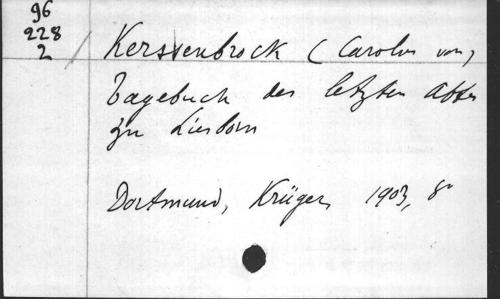 96
228
2
Kerssenbrock (Carolus von)
Tagebuch des letzten Abtes
zu Liesborn
Dortmund, Krüger, 1903, 8°